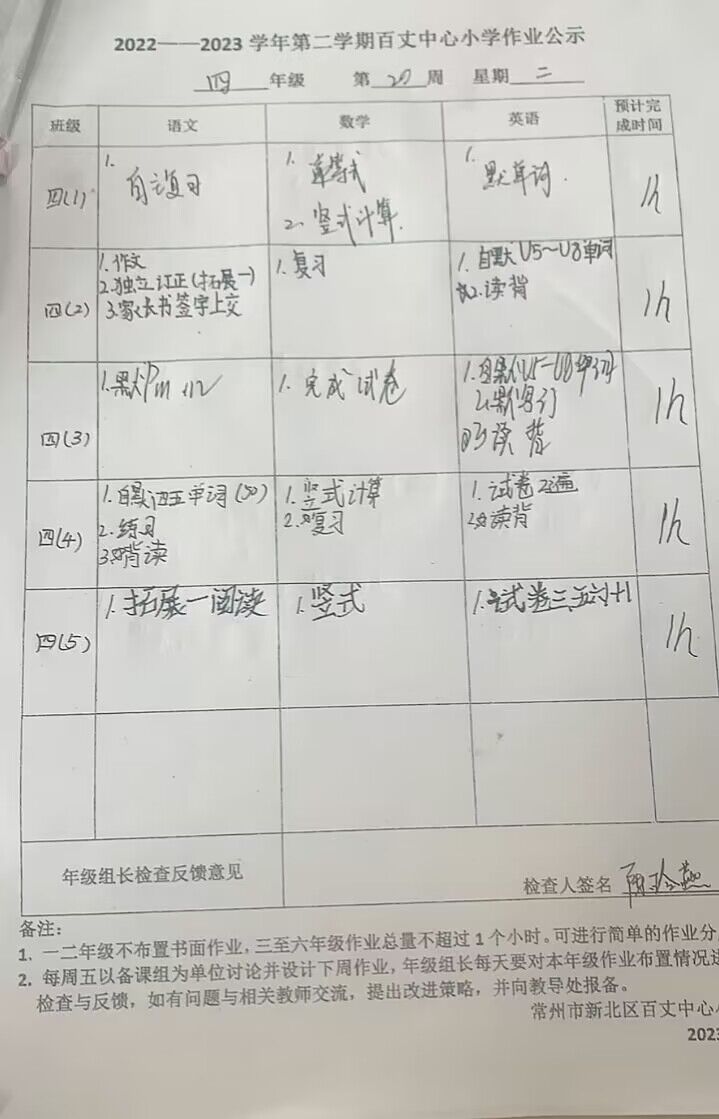 2022——2023 学年第二学期百丈中心小学作业公示
四 年级 第 20 周 星期 二
班级 语文 数学 英语 预计完成时间
四(1)
1. 自主复习
1.
2. 竖式计算.
1. 默单词.
1h
四(2)
1.作文
2.独立订正(拓展一)
3.家长书签字上交
1.复习
1. 自默U5~U8单词
2.读背
1h
四(3)
1.默
1. 完成试卷
1.自默U5-U8单词
2.默
3.读背
1h
四(4)
1.自默四五单词
2.练习
3.背读
1.竖式计算
2.复习
1.试卷2遍
2.读背
1h
四(5)
1.拓展一阅读
1.竖式
1.试卷三、五
1h
年级组长检查反馈意见
检查人签名
备注:
1. 一二年级不布置书面作业，三至六年级作业总量不超过 1 个小时。可进行简单的作业分
2. 每周五以备课组为单位讨论并设计下周作业，年级组长每天要对本年级作业布置情况进
检查与反馈，如有问题与相关教师交流，提出改进策略，并向教导处报备。
常州市新北区百丈中心
2023